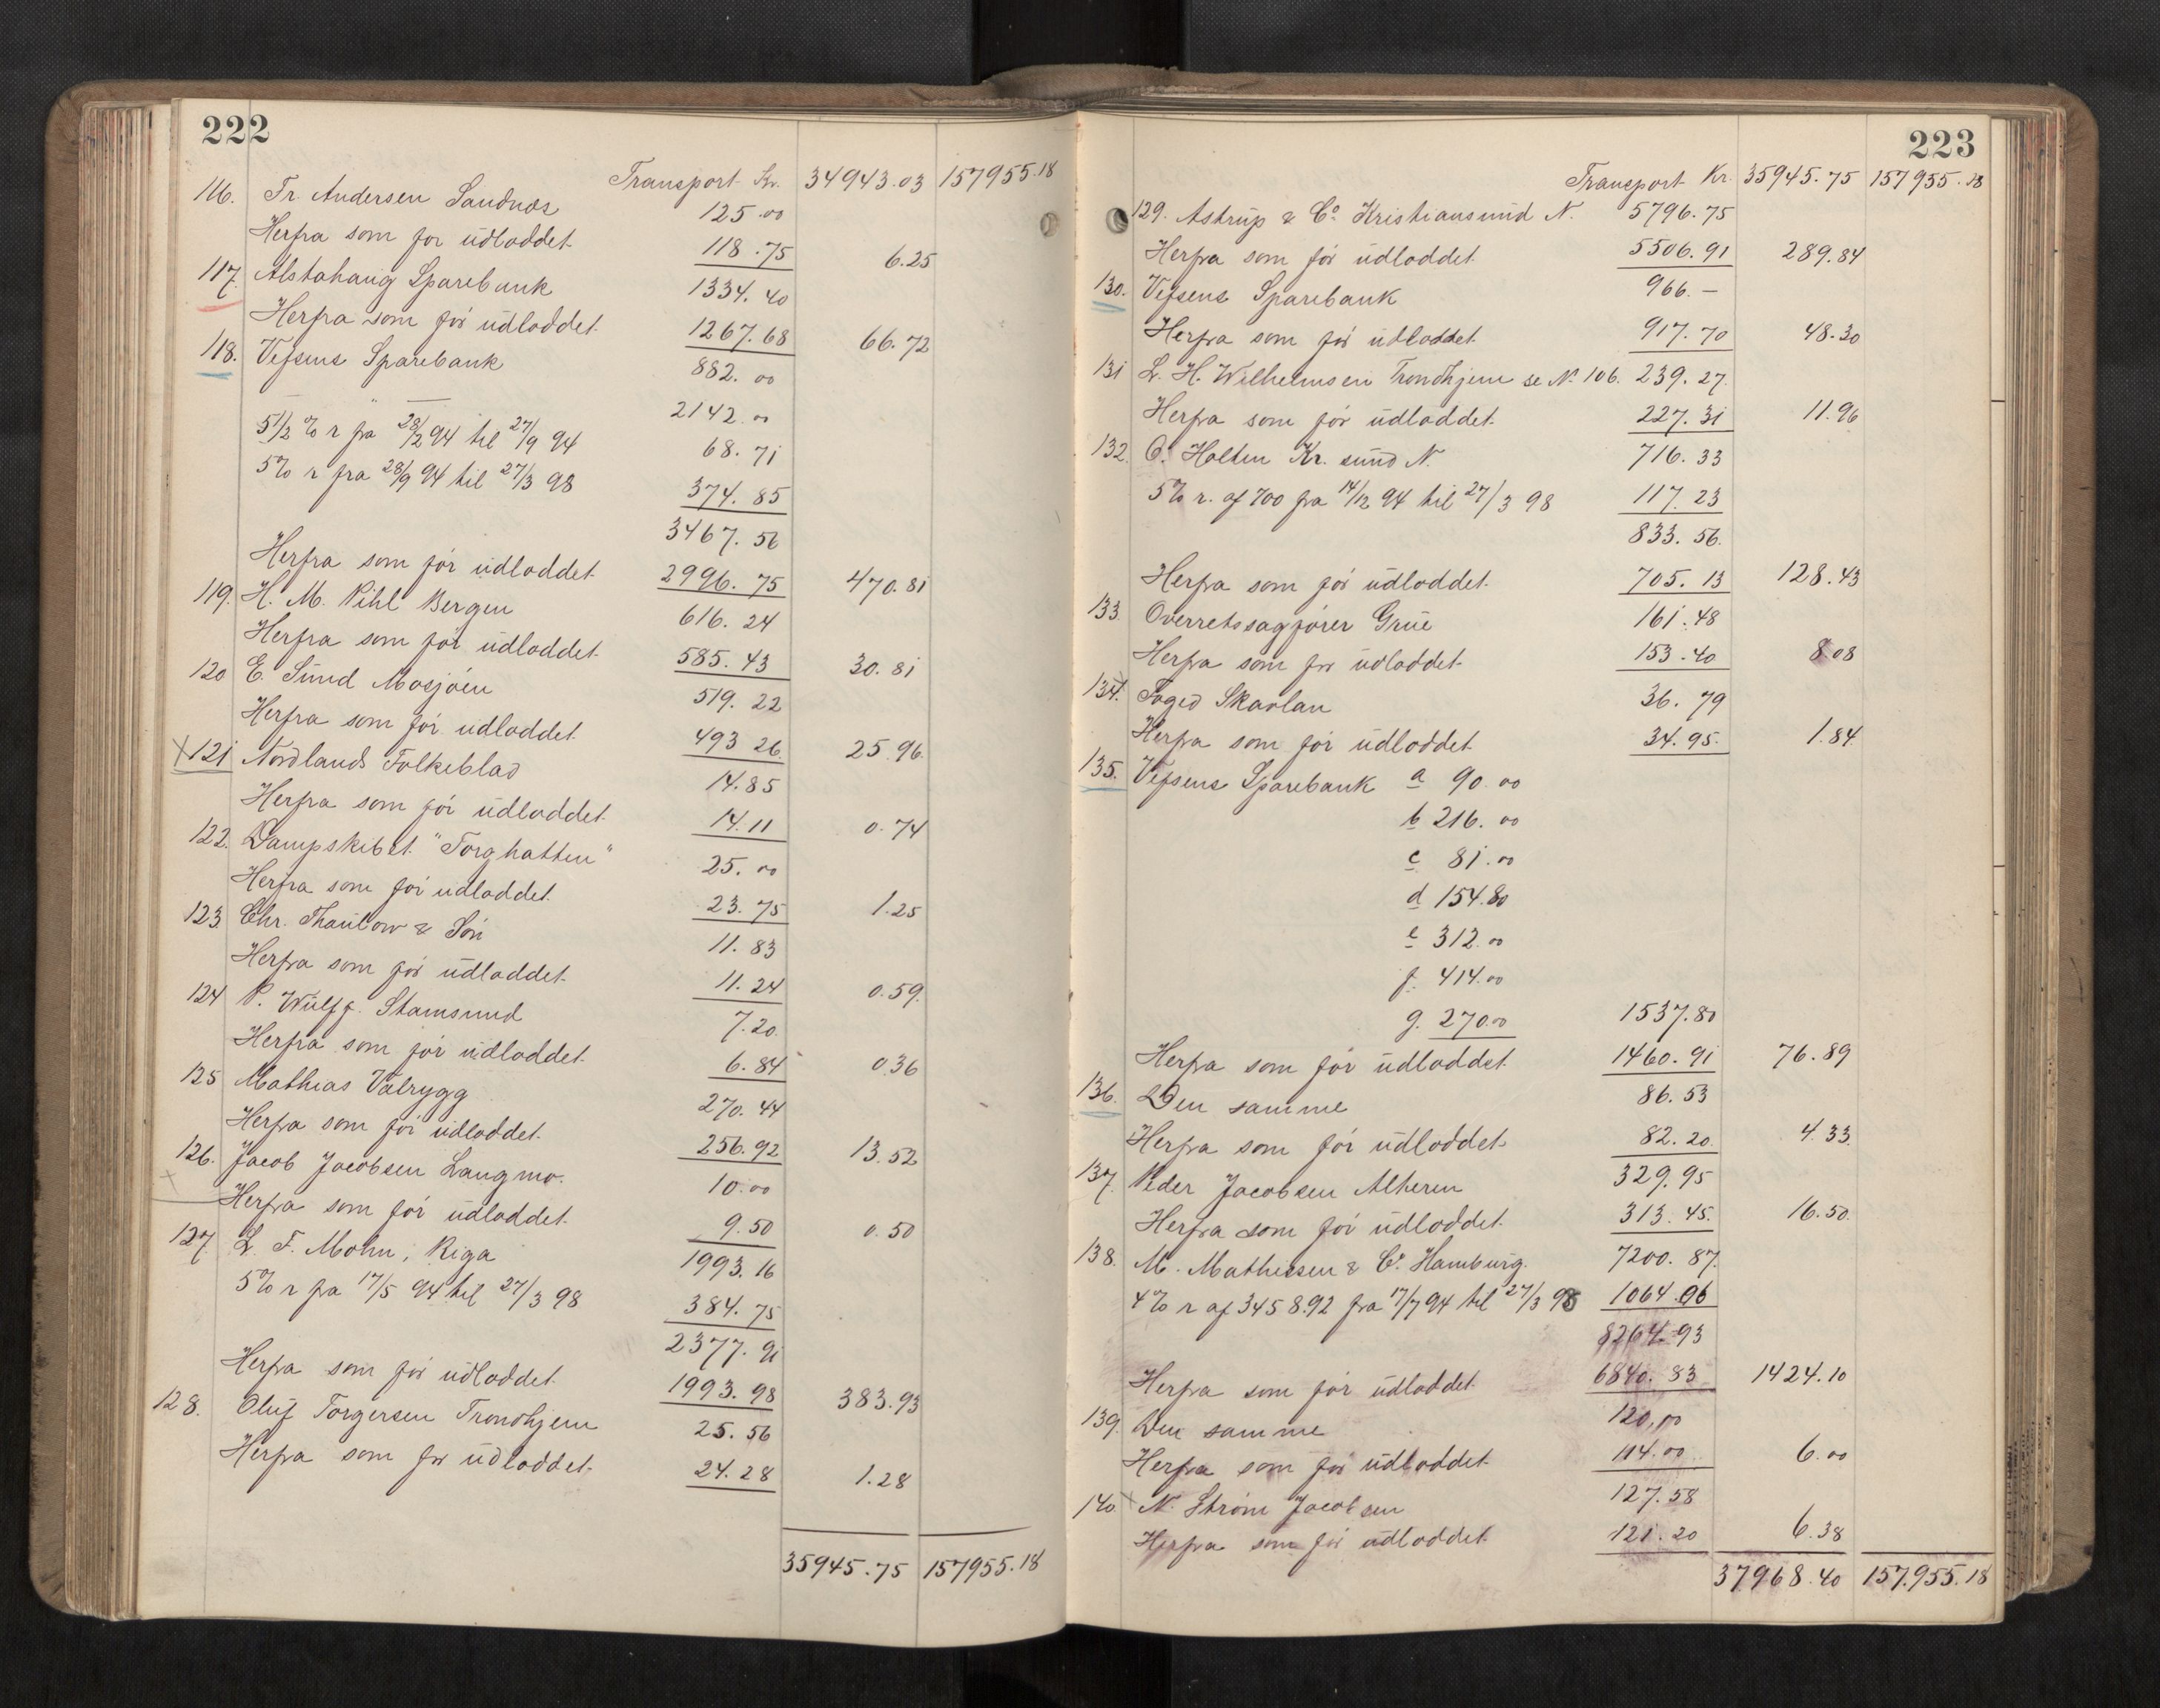 222
Transport Kr. 34943.03 157955.18
116. Fr. Andersen Sandnæs 125.00
Herfra som før udloddet 118.75 6.25
117. Alstahaug Sparebank 1334.40
Herfra som før udloddet 1267.68 66.72
118. Vefsens Sparebank 882.00
— " — 2142.00
5 1/2 % r fra 28/2 94 til 27/9 94 68.71
5% r fra 28/9 94 til 27/3 98 374.85
3467.56
Herfra som før udloddet 2996.75 470.81
119. H. M. Pihl Bergen 616.24
Herfra som før udloddet 585.43 30.81
120 E. Sund Mosjøen 519.22
Herfra som før udloddet 493 26 25.96
x 121 Nordlands Folkeblad 14.85
Herfra som før udloddet 14.11 0.74
122. Dampskibet "Torghatten" 25.00
Herfra som før udloddet 23.75 1.25
123. Chr. Thaulow & Søn 11.83
Herfra som før udloddet 11.24 0.59
124 P. Wulff. Stamsund 7.20
Herfra som før udloddet 6.84 0.36
125 Mathias Valrygg 270.44
Herfra som før udloddet 256.92 13.52
126. Jacob Jacobsen Langmo. 10.00
x Herfra som før udloddet 9.50 0.50
127. L. F. Mohn, Riga 1993.16
5% r fra 17/5 94 til 27/3 98 384.75
2377.91
Herfra som før udloddet 1993.98 383.93
128. Oluf Torgersen Trondhjem 25.56
Herfra som før udloddet 24.28 1.28
35945.75 157955.18
223
Transport Kr. 35945.75 157955.18
129. Astrup & Co Kristiansund N. 5796.75
Herfra som før udloddet 5506.91 289.84
130. Vefsens Sparebank 966.—
Herfra som før udloddet 917.70 48.30
131 L. H. Wilhelmsen Trondhjem se No 106. 239.27
Herfra som før udloddet 227.31 11.96
132. O. Holten Kr. sund N. 716.33
5% r. af 700 fra 14/12 94 til 27/3 98 117.23
833.56
Herfra som før udloddet 705.13 128.43
133. Overretssagfører Grue 161.48
Herfra som før udloddet 153.40 8.08
134. Foged Skavlan 36.79
Herfra som før udloddet 34.95 1.84
135. Vefsens Sparebank a 90.00
b 216.00
c 81.00
d 154.80
e 312.00
f. 414.00
g. 270.00 1537.80
Herfra som før udloddet 1460.91 76.89
136. Den samme 86.53
Herfra som før udloddet 82.20 4.33
137. Peder Jacobsen Altheren 329.95
Herfra som før udloddet 313.45 16.50
138. M. Mathiesen & Co. Hamburg. 7200.87
4% r af 3458.92 fra 17/7 94 til 27/3 98 1064.06
8264.93
Herfra som før udloddet 6840.83 1424.10
139. Den samme 120.00
Herfra som før udloddet 114.00 6.00
140. x N. Strøm Jacobsen 127.58
Herfra som før udloddet 121.20 6.38
37968.40 157.955.18